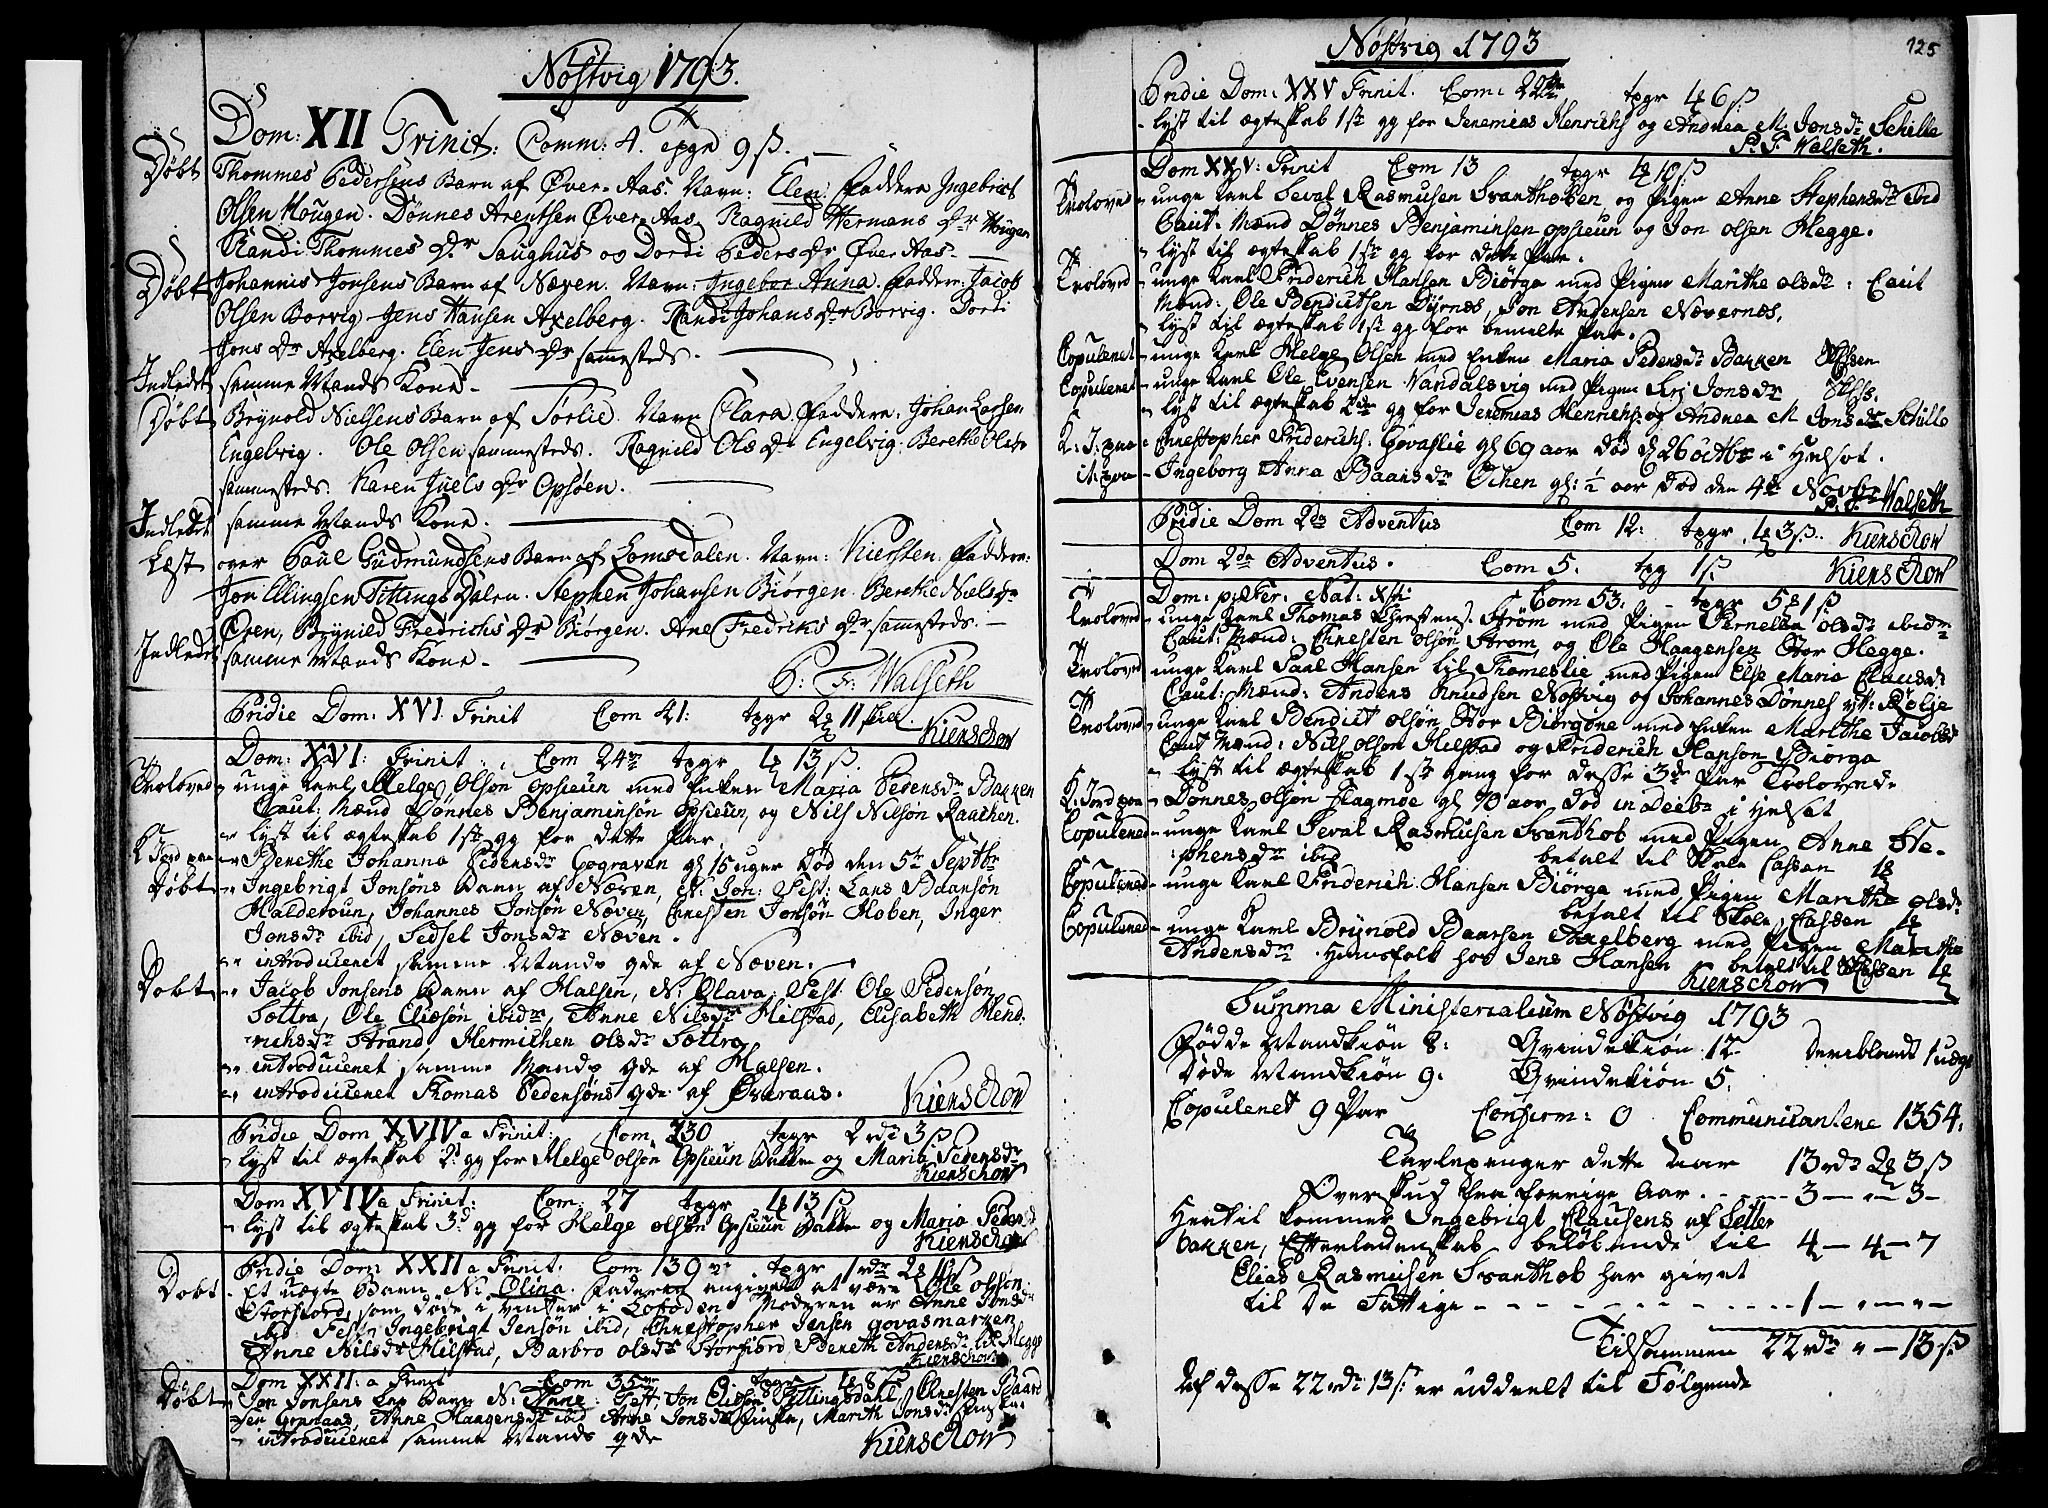 Nøstvig 1793.
Dom: XII Trinit: Comm: 4. Tpgr 9ß.
Døbt Thommes Pedersens Barn af Øver-Aas. Navn: Elen. Faddere Ingebrigt
Olsen Hougen. Dønnes Arentsen Øver-Aas. Ragnild Hermans Dr Hougen
Randi Thommes Dr Saughus og Dordi Peders Dr Øver Aas.
Døbt Johannis Jonsens Barn af Næven. Navn: Ingebor Anna. Faddere: Jacob
Olsen Borvig Jens Hansen Axelberg. Randi Johans Dr Borvig. Dordi
Jons Dr Axelberg. Elen Jens Dr sammesteds.
Indledet samme Mands Kone.
Døbt Brynold Nielsens Barn af Tørlie. Navn Clara. Faddere: Johan Larsen
Engelvig. Ole Olsen sammesteds. Ragnild Ols Dr Engelvig. Berethe Ols Dr
sammesteds. Karen Juels Dr Opsøen.
Indledet samme Mands Kone.
Læst over Paul Gudmundsens Barn af Lomsdalen. Navn: Kiersten. Faddere:
Jon Ellingsen Tittings Dalen. Stephen Johansen Biørgen. Berethe Niels Dr
Øren, Brynild Fredrichs Dr Biørgen. Ane Fredriks Dr sammesteds.
Indledet samme Mands Kone.
P: F: Walseth
Pridie Dom: XVI Trinit Com 41: tpgr 2 11 skil. Kierschow
Dom: XVI: Trinit: Com 24 tpgr 13ß.
Troloved unge Karl Helge Olsøn Opsieun med Enken Maria Pedersdr Bakken
Caut: Mænd Dønnes Benjaminsøn Opsieun, og Nils Nilsøn Raachen.
lyst til ægteskab 1ste gg for dette Par.
Berethe Johanna Pedersdr gl 15 uger død den 5te Septbr
Døbt Ingebrigt Jonsøns Barn af Næven, N: Jon: Test: Lars Baarsøn
Halderoun, Johannes Jonsøn Næven, Christen Jonsøn Hoben, Inger
Jonsdr ibid, Sedsel Jonsdr Næven.
introduceret samme Mands qde af Næven.
Døbt Jacob Jonsens Barn af Halsen, N: Olava: Test: Ole Pedersøn
Sættra, Ole Eliesøn ibidm, Anne Nilsdr Hilstad, Elisabeth Hend
richsdr Strand Hermichen olsdr Sættra
introduceret samme Mands qde af Halsen.
introduceret Thomas Pedersøns qde af Øveraas. Kierschow
Pridie Dom XVIVa Trinit: Com 330 tpgr 2 rdr 3ß
lyst til ægteskab 2d gg for Helge olsøn Opsieun Bakken og Maria Pedersdr
Kierschow
Dom XVIVa Trinit: Com: 27 tpgr 13ß
lyst til ægteskab 3d gg for Helge olsøn Opsieun Bakken og Maria Pedersdr
Kierschow
Pridie Dom XXII a Trinit: Com 139 tpgr 1 rdr 2
Døbt Et uægte Barn N: Olina. Faderen angivet at være Ole olsøn
Storfiord, som døde i vinter i Lofoden. Moderen er Anne Jonsdr
ibid Test: Ingebrigt Jensøn ibid, Christopher Jensen Govasmarken
Anne Nilsdr Hilstad, Barbro olsdr Storfiord Bereth Andersdr Hegge
Kierschow
Dom XXII: a Trinit Com 35 tpgr 8ß
Døbt Jon Jonsens Barn N: Anne: Test: Jon Eliesøn Tittingsdahl, Christen Baard
sen Granaas, Anne Haagensdr ibid Anne Jonsdr, Marith Jonsdr
introduceret samme Mands qde Kierschow
Nøstvig 1793
125
Pridie Dom: XXV Trinit. Com: 22 tpgr 6ß.
lyst til ægteskab 1ste gg for Jeremias Henrichs og Andrea M. Jonsdr Schille
P. F. Walseth.
Dom XXV: Trinit Com 13 tpgr 10ß
Trolovet unge Karl Seval Rasmusen Svanthoben og Pigen Anne Stephensdr ibid
Caut: Mænd Dønnes Benjaminsen opsieun og Jon olsen Hegge.
lyst til ægteskab 1ste gg for dette Par.
Trolovet unge Karl Friderich Hansen Biørga med Pigen Marithe olsdr: Caut
Mænd: Ole Bendictsen Dyrnes, Jon Andersen Nævernes,
lyst til ægteskab 1ste gg for bemelte Par.
Copuleret unge Karl Helge Olsen med Enken Maria Pedersdr Bakken
Copuleret unge Karl Ole Evensen Vandalsvig med Pigen Jonsdr
lyst til ægteskab 2den gg for Jeremias Henrichs: og Andrea M Jonsdr Schille
Christopher Friderichs: Govaslie gl 69 aar død d 26 octbr i Helset.
Ingeborg Anna Baarsdr gl: ½ aar død den 4de Novbr
P. F. Walseth
Pridie Dom 2da Adventus Com 12: tpgr 3ß. Kierschow
Dom 2da Adventus. Com 5. tpg 1ß Kierschow
Dom: p: Fer: Nat: Xsti Com 53. tpgr 5 1ß
Trolovet unge Karl Thomas Christens: Strøm med Pigen Pernella olsdr ibidm
Caut: Mænd: Christen olsøn Strøm, og Ole Haagensen Stor Hegge.
Trolovet unge Karl Paul Hansen lil Thomeslie med Pigen Else Maria Clausdr
Caut: Mænd: Anders Knudsen Nøstvig og Johannes Dønnes ytt: Kølje
Trolovet unge Karl Bendict olsøn Stor Biørgone med Enken Marithe Jacobsdr
Caut Mænd: Nils olsøn Hilstad og Friderich Hansøn Biørga
lyst til ægteskab 1ste gang for desse 3de Par Trolovede
Dønnes olsøn Flagmoe gl 70 aar, død in Decbr i Helset
Copulered unge Karl Seval Rasmusen Svanthob med Pigen Anne Ste-
phensdr ibid betalt til Skole Cassen 1
Copulered unge Karl Friderich Hansen Biørga med Pigen Marithe olsdr
betalt til Skole Cassen 1
Copulered unge Karl Brynold Baarsen Axelberg med Pigen Marithe
Andersdr. Huusfolk hos Jens Hansen betalt til Cassen 1
Kierschow
Summa Ministerialium Nøstvig 1793
Fødde Mandkiøn 8: Qvindekiøn 12 deriblandt 1 uægt
Døde Mandkiøn 9. Qvindekiøn 5.
Copuleret 9 Par Confirm: 0 Communicantere 1354.
Tavlepenger dette Aar 13 rdr 2 3ß
Overskud fra forrige Aar. - - - 3 — „ — 3 —
Hertil kommer Ingebrigt Clausens af Setter
bakken, Efterladenskab beløbende til 4 — 4 — 7
Elias Rasmusen Svanthob har givet
til De Fattige - - - - - - - 1 — „ — „ —
Tilsammen 22 rdr „ — 13ß
Af desse 22 rdr 13ß er uddeelt til Følgende